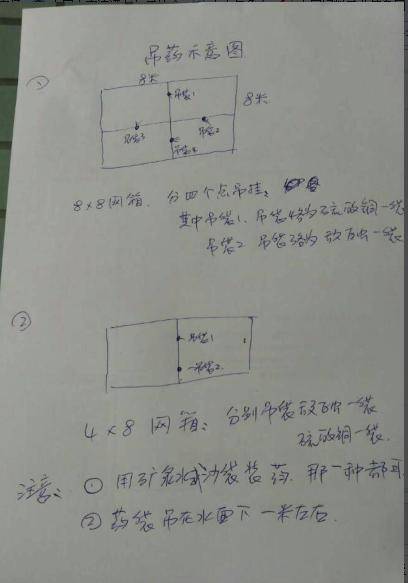 吊药示意图
①
8米
8米
吊袋1
吊袋2
吊袋3
吊袋4
8×8网箱. 分四个点吊挂;
其中吊袋1. 吊袋4各为硫酸铜一袋
吊袋2 吊袋3各为敌百虫一袋
②
吊袋1
吊袋2
4×8网箱: 分别吊袋敌百虫一袋
硫酸铜一袋.
注意: ① 用矿泉水或沙袋装药. 那一种都可
② 药袋吊在水面下一米左右.